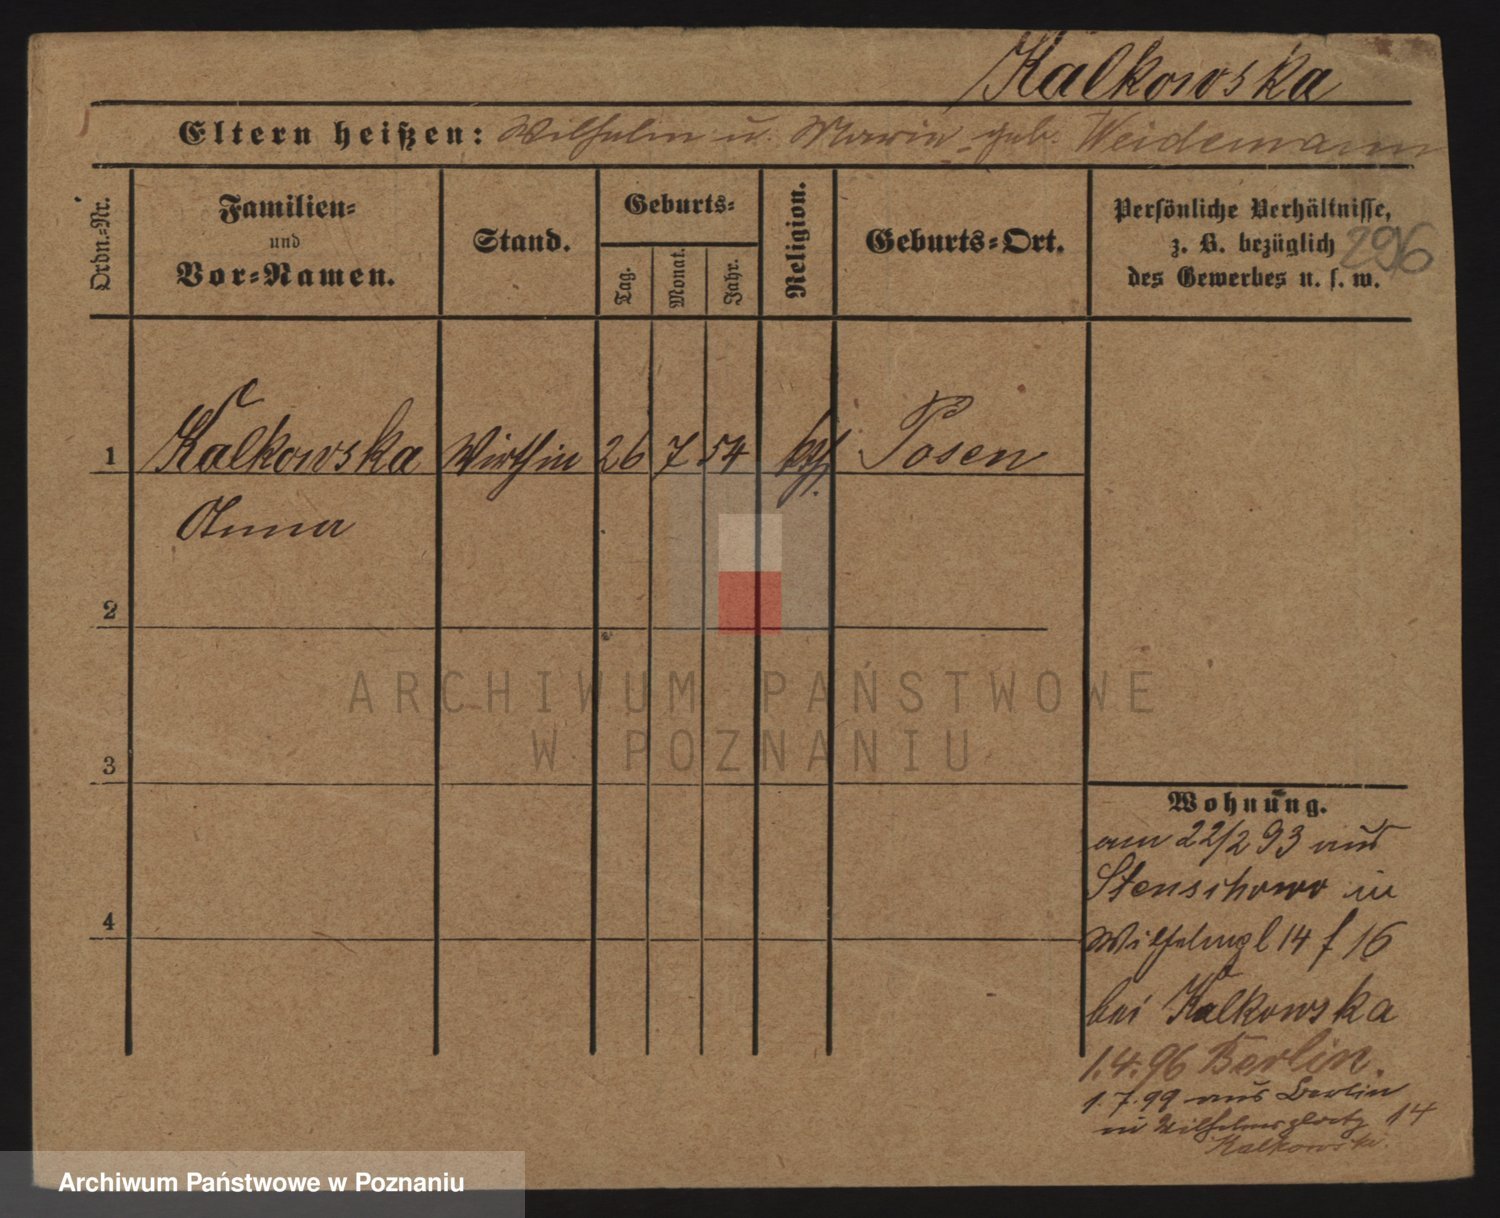 Kalkowska
Eltern heißen: Wilhelm u. Marie geb. Weidemann
Ordn.-Nr.
Familien-
und
Vor-Namen.
Stand.
Geburts-
Tag.
Monat.
Jahr.
Religion.
Geburts-Ort.
Persönliche Verhältnisse,
z. B. bezüglich
des Gewerbes u. s. w.
296
1
Kalkowska Wirthin 26 7 54 Posen
Anna
2
3
4
ARCHIWUM PAŃSTWOWE
W POZNANIU
Wohnung.
am 22/2 93 aus
Stenschowo in
Wilhelmpl 14 f 16
bei Kalkowska
1.4.96 Berlin.
1.7.99 aus Berlin
in Wilhelmsplatz 14
Kalkowska.
Archiwum Państwowe w Poznaniu